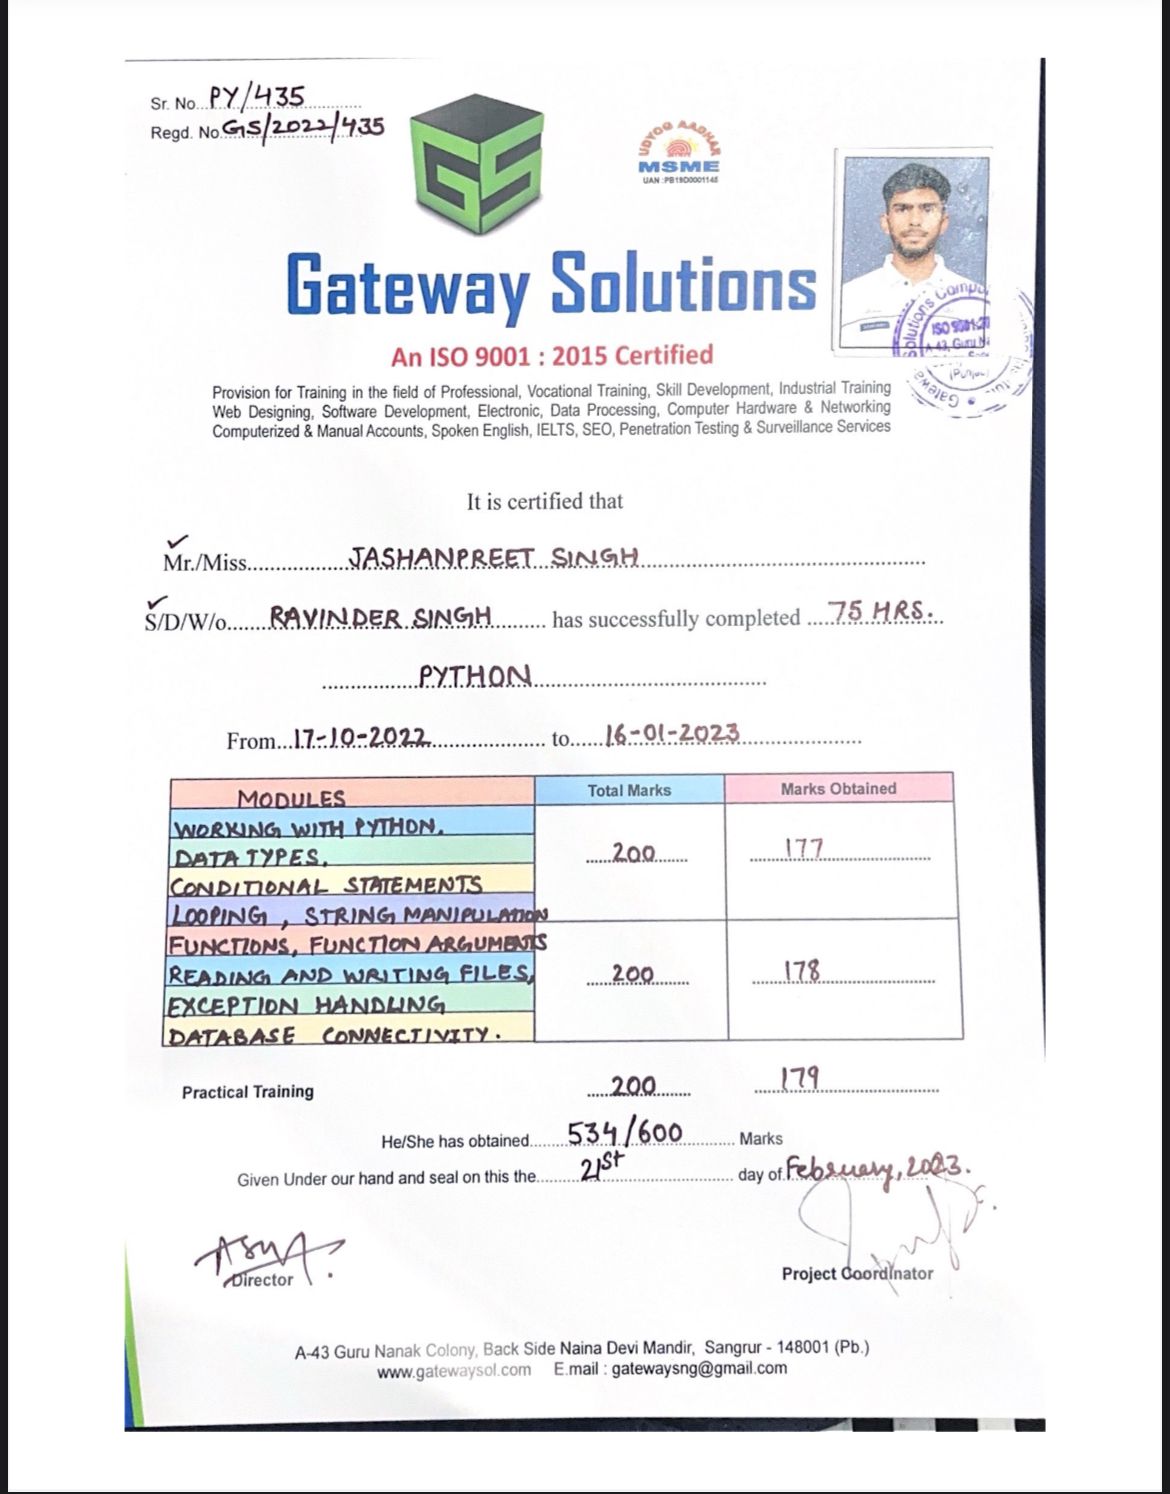 Sr. No. PY/435
Regd. No. GS/2022/435
GS
UDYOG AADHAR
MSME
UAN :PB19D0001145
Gateway Solutions
An ISO 9001 : 2015 Certified
Provision for Training in the field of Professional, Vocational Training, Skill Development, Industrial Training
Web Designing, Software Development, Electronic, Data Processing, Computer Hardware & Networking
Computerized & Manual Accounts, Spoken English, IELTS, SEO, Penetration Testing & Surveillance Services
It is certified that
Mr./Miss JASHANPREET SINGH
S/D/W/o RAVINDER SINGH has successfully completed 75 HRS.
PYTHON
From 17-10-2022 to 16-01-2023
MODULES Total Marks Marks Obtained
WORKING WITH PYTHON.
DATA TYPES. 200 177
CONDITIONAL STATEMENTS
LOOPING, STRING MANIPULATION
FUNCTIONS, FUNCTION ARGUMENTS
READING AND WRITING FILES, 200 178
EXCEPTION HANDLING
DATABASE CONNECTIVITY.
Practical Training 200 179
He/She has obtained 534/600 Marks
Given Under our hand and seal on this the 21st day of February, 2023.
Director
Project Coordinator
A-43 Guru Nanak Colony, Back Side Naina Devi Mandir, Sangrur - 148001 (Pb.)
www.gatewaysol.com E.mail : gatewaysng@gmail.com